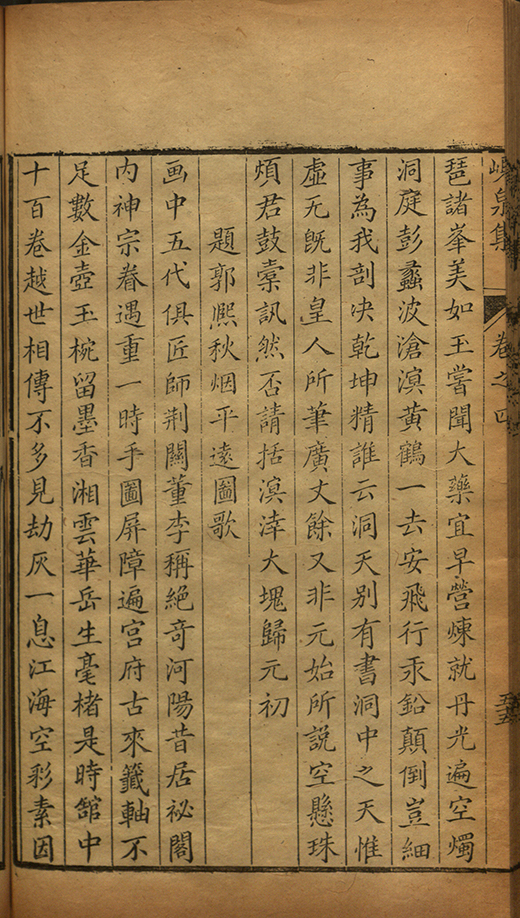 峴泉集 卷之四
琶諸峯美如玉嘗聞大藥宜早營煉就丹光遍空燭
洞庭彭蠡波滄溟黃鶴一去安飛行汞鉛顛倒豈細
事為我剖决乾坤精誰云洞天别有書洞中之天惟
虛无旣非皇人所筆廣丈餘又非元始所説空懸珠
煩君鼓橐訊然否請括溟涬大塊歸元初
題郭熈秋烟平逺圖歌
画中五代俱匠師荆關董李稱絶奇河陽昔居祕閣
内神宗眷遇重一時手圖屏障遍宫府古來籤軸不
足數金壺玉椀留墨香湘雲華岳生毫楮是時舘中
十百卷越世相傳不多見劫灰一息江海空彩素因